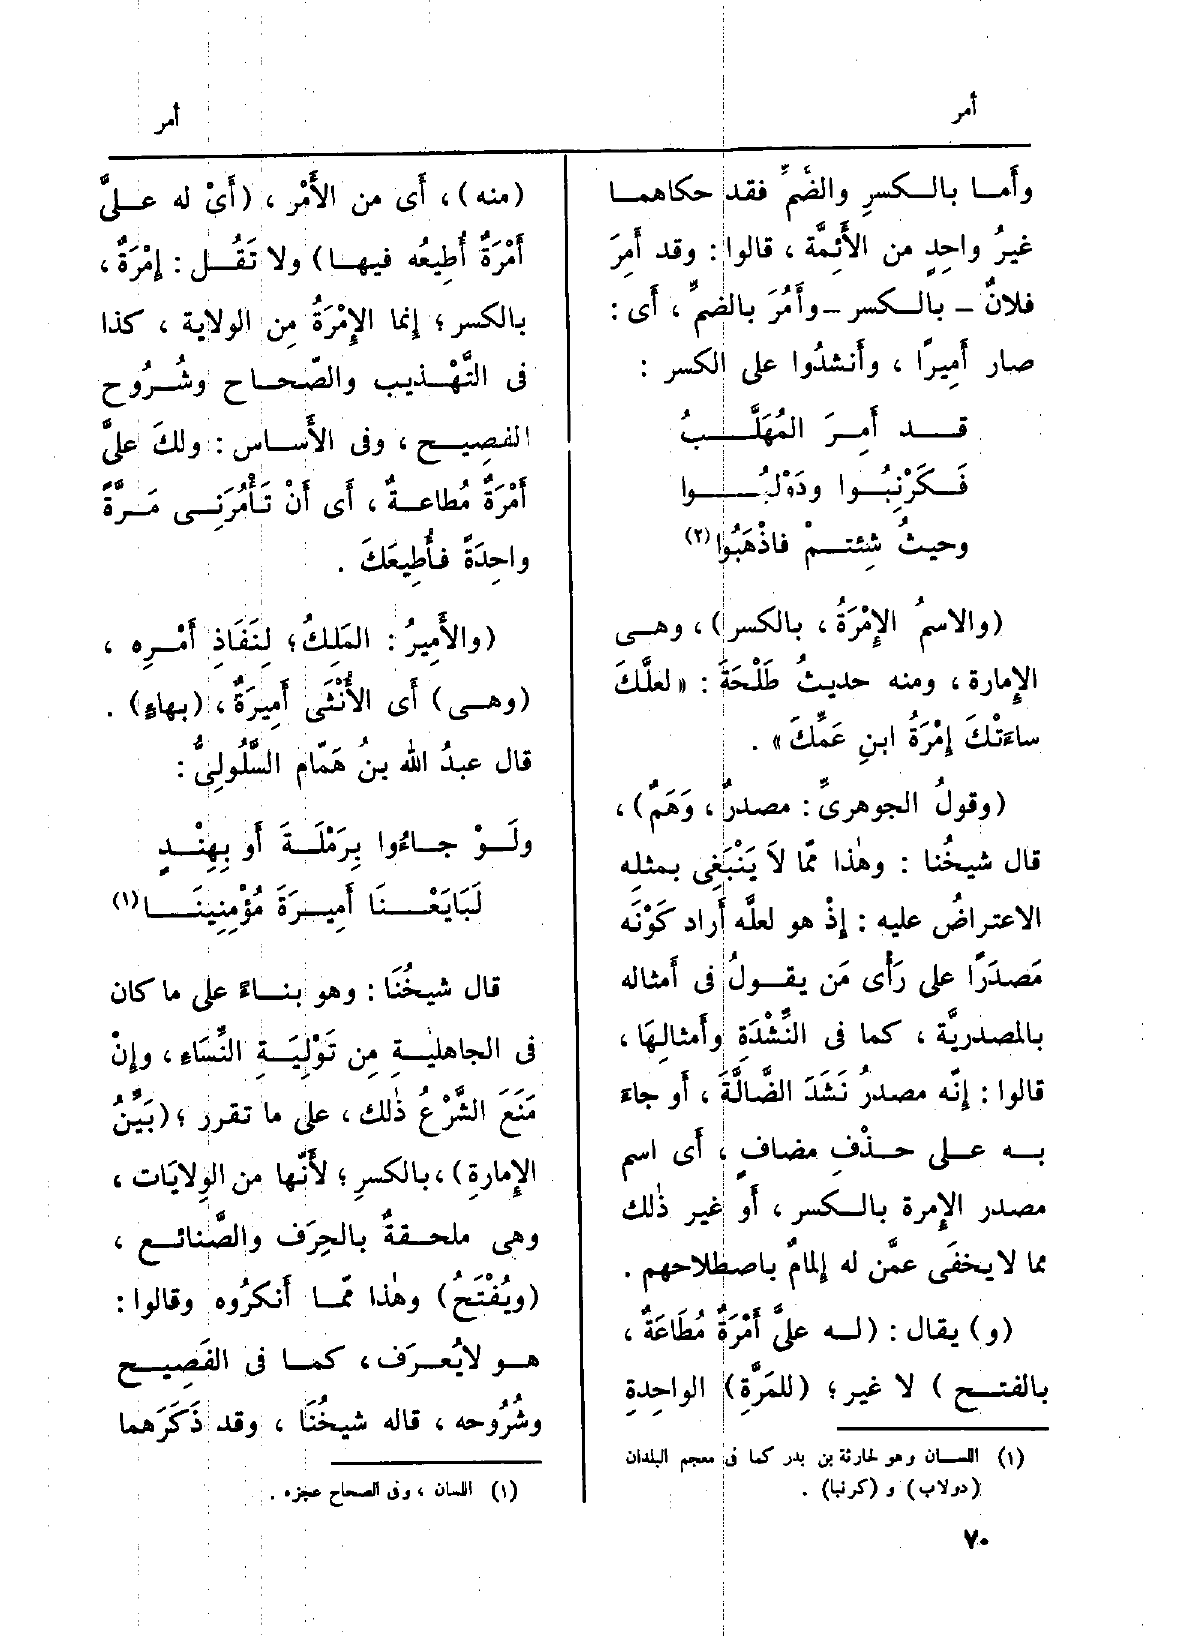 أمر
أمر
وأَمـا بالـكسرِ والضَّمِّ فقد حكاهمـا
غيرُ واحِدٍ من الأَئِمَّة ، قالوا : وقد أَمِرَ
فلانٌ – بالـكسر – وأَمُرَ بالضمِّ ، أَى :
صار أَمِيرًا ، وأَنشدُوا على الكسر :
قـد أَمِرَ المُهَلَّـبُ
فَـكَرْنِبُـوا ودَوْلِبُـوا
وحيثُ شِئتـمْ فاذْهَبُوا (٢)
(والاسمُ الإِمْرَةُ ، بالكسر) ، وهـى
الإِمارة ، ومنه حديثُ طَلْحَةَ : « لعلَّكَ
ساءَتْكَ إِمْرَةُ ابنِ عَمِّكَ » .
(وقولُ الجوهرىِّ : مصدرٌ ، وَهَمٌ) ،
قال شيخُنا : وهٰذا ممّا لاَ يَنْبَغِى بـمثلِه
الاعتراضُ عليه : إِذْ هو لعلَّه أَراد كَوْنَه
مَصدَرًا على رَأْى مَن يقـولُ فى أَمثاله
بالمصدريَّة ، كما فى النِّشْدَةِ وأَمثالِهَا ،
قالوا : إِنَّه مصدرُ نَشَدَ الضَّالَّةَ ، أَو جاءَ
بـه عـلى حـذْفِ مضافٍ ، أَى اسم
مصدر الإِمرة بالـكسر ، أَو غير ذٰلك
مما لا يخفَى عمَّن له إِلمامٌ باصطلاحهم .
(و) يقال : (لـه علىَّ أَمْرَةٌ مُطَاعَةٌ ،
بالفتـح ) لا غير ؛ (للمَرَّةِ) الواحِدةِ
(١) اللسان وهو لحارثة بن بدر كما فى معجم البلدان
(دولاب) و (كرنبا) .
(منه) ، أَى من الأَمْر ، (أَىْ له عـلىَّ
أَمْرَةٌ أُطِيعُه فيهـا) ولا تَقُـل : إِمْرَةٌ ،
بالكسر ؛ إِنما الإِمْرَةُ مِن الولاية ، كذا
فى التَّهْـذيب والصّحـاح وشُـرُوح
الفصِيـح ، وفى الأَسـاس : ولكَ علىَّ
أَمْرَةٌ مُطاعـةٌ ، أَى أَنْ تَـأْمُرَنِـى مَـرَّةً
واحِدَةً فأُطِيعَكَ .
(والأَمِيرُ : المَلِكُ ؛ لِنَفَاذِ أَمْـرِه ،
(وهـى) أَى الأُنْثَى أَمِيرَةٌ ، (بهاءٍ) .
قال عبدُ اللّٰه بنُ هَمّام السَّلُولِىُّ :
ولَـوْ جـاءُوا بِرَمْلَـةَ أَو بِهِنْـدٍ
لَبَايَعْـنَا أَمِيـرَةَ مُؤْمِنِينَـا (١)
قال شيخُنَا : وهو بنـاءً على ما كان
فى الجاهليـةِ مِن تَوْلِيَـةِ النِّسَاءِ ، وإِنْ
مَنَعَ الشَّرْعُ ذٰلك ، على ما تقرر ؛ (بَيِّنُ
الإِمارةِ) ، بالكسرِ ؛ لأَنَّها من الوِلايَات ،
وهى ملحـقةٌ بالحِرَف والصَّنائـع ،
(ويُفْتَحُ) وهٰذا ممّـا أَنكرُوه وقالوا :
هـو لايُعـرَف ، كمـا فى الفَصِيـح
وشُرُوحه ، قاله شيخُنَا ، وقد ذَكَرَهما
(١) اللسان ، وفى الصحاح عجزه .
٧٠